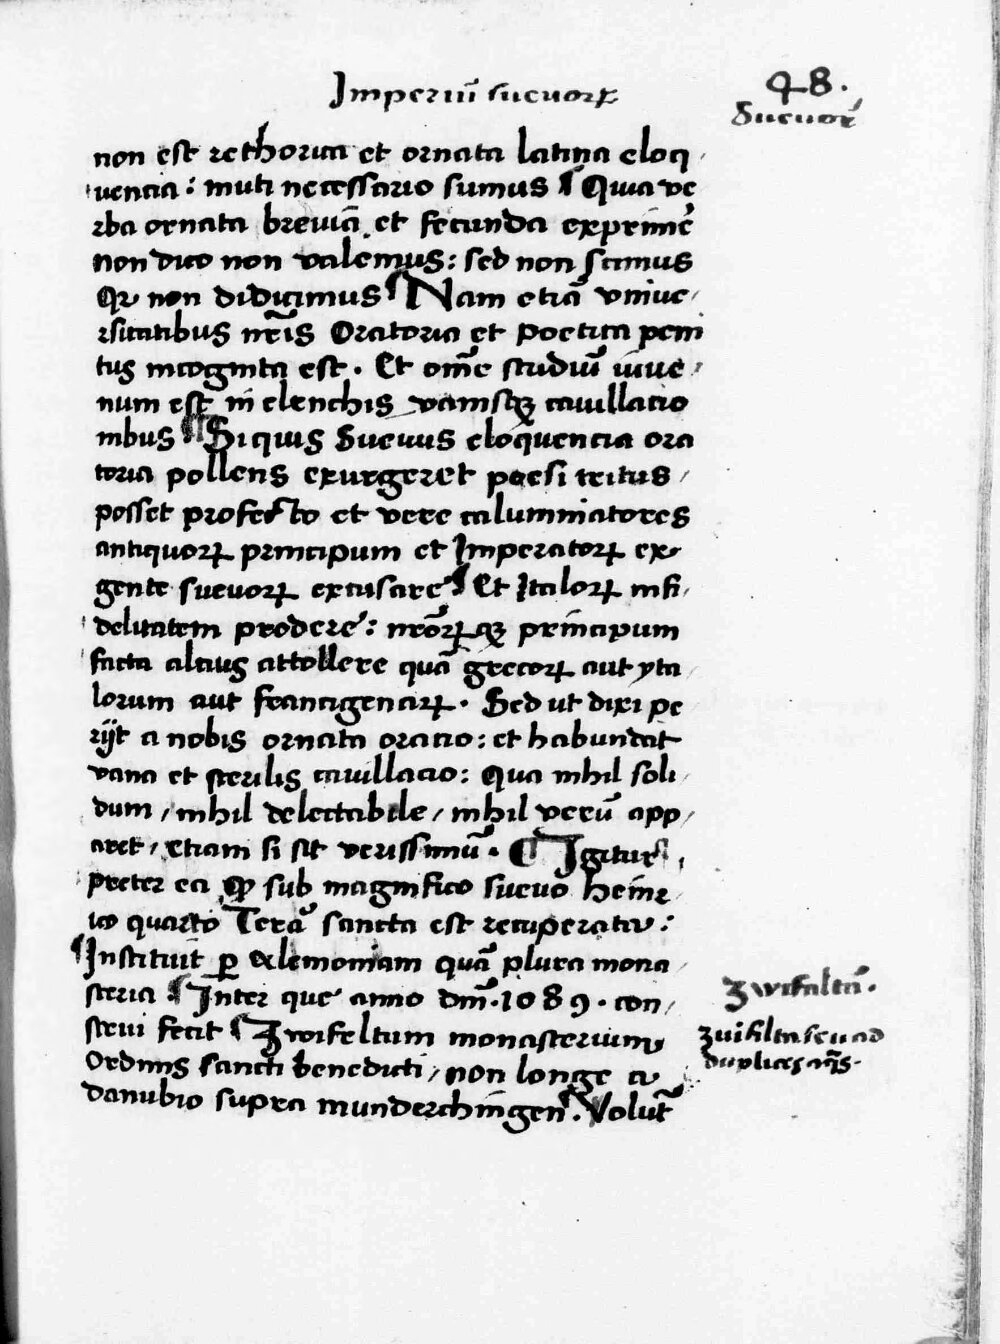 Imperiū suevorꝝ
48.
Suevorꝝ
non est rethorica et ornata latina eloq
uencia: muti necessario sumus ¶ Quia ve
rba ornata breviā et fecunda exprimēe
non dico non valemus: sed non scimus
Qꝛ non didicimus ¶ Nam etiā vniue
rsitatibus nr̄is Oratoria et poetica peni
tus incognita est. Et om̄e studiū iuue
num est in elenchis vanisqꝫ cauillacio
nibus ¶ Si quis Suevus eloquencia ora
toria pollens exurgeret poesi tritus
posset profecto et vere calumniatores
antiquorꝝ principum et Imperatorꝝ ex
gente suevorꝝ excusare ¶ Et Italorꝝ infi
delitatem prodere: nr̄orꝝqꝫ principum
facta altius attollere quā grecorꝝ aut yta
lorum aut francigenarꝝ. Sed ut dixi pe
rijt a nobis ornata oracio: et habundat
vana et sterilis cauillacio: Qua nihil soli
dum, nihil delectabile, nihil verū app
aret, etiam si sit verissimū. ¶ Igitur
preter ea qꝫ sub magnifico suevo Heinr
ico quarto Terā sancta est recuperata:
¶ Instituit ꝑ Alemoniam quā plura mona
steria ¶ Inter que anno dn̄i. 1089. con
strui fecit ¶ Zwifeltum monasterium
Ordinis sancti benedicti, non longe a
danubio supra munderchingen̄. Voluit
Zwifaltā.
zwifilta seu ad
duplices aq̄s.